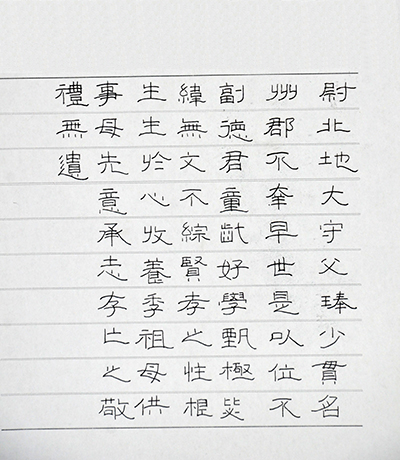 尉北地大守父琫少貫名
州郡不幸早世是以位不
副德君童齔好學甄極毖
緯無文不綜賢孝之性根
生生於心收養季祖母供
事母先意承志存亡之敬
禮無遺